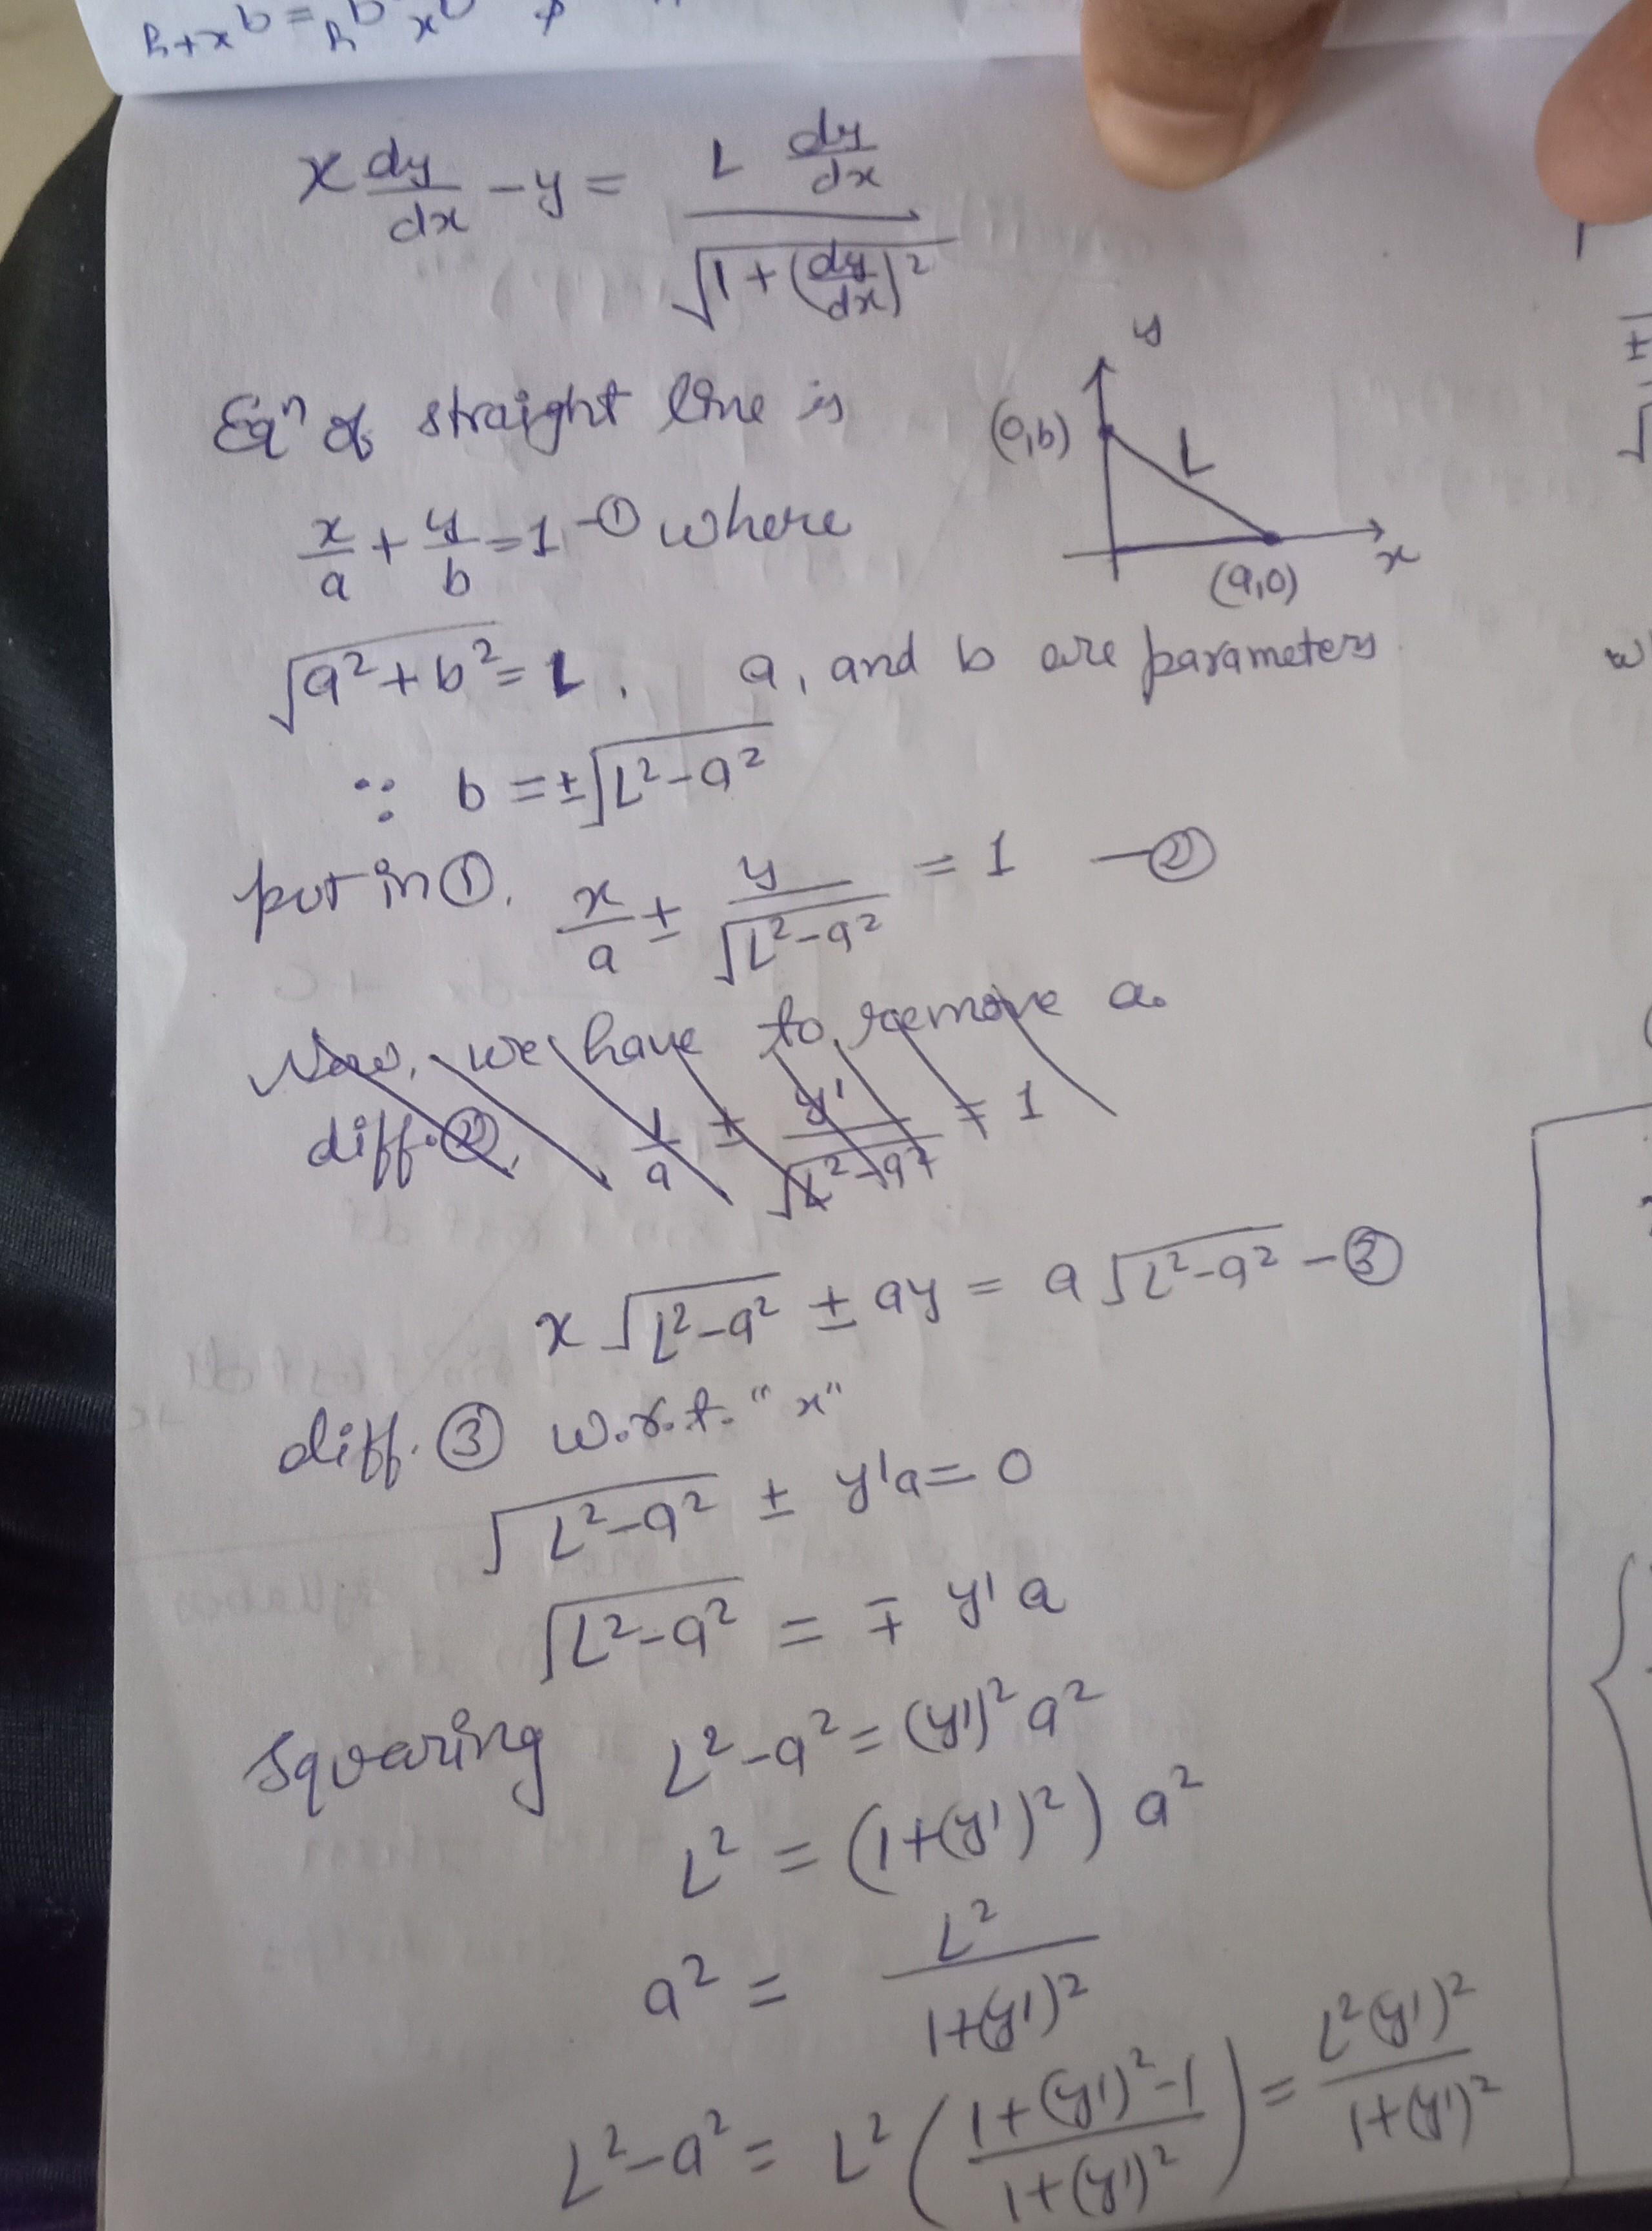 x dy/dx - y = L dy/dx / √(1 + (dy/dx)²)
Eqⁿ of straight line is
x/a + y/b = 1 -① where
√(a² + b²) = L, a, and b are parameters.
y
(0,b)
L
(a,0)
x
∵ b = ±√(L² - a²)
put in ①. x/a ± y/√(L² - a²) = 1 —②
Now, we have to remove a.
diff. ②, 1/a ± y'/√(L² - a²) = 1
x √(L² - a²) ± ay = a √(L² - a²) -③
diff. ③ w.r.t. "x"
√(L² - a²) ± y'a = 0
√(L² - a²) = ∓ y' a
Squaring L² - a² = (y')² a²
L² = (1 + (y')²) a²
a² = L² / 1 + (y')²
L² - a² = L² (1 + (y')² - 1 / 1 + (y')²) = L² (y')² / 1 + (y')²